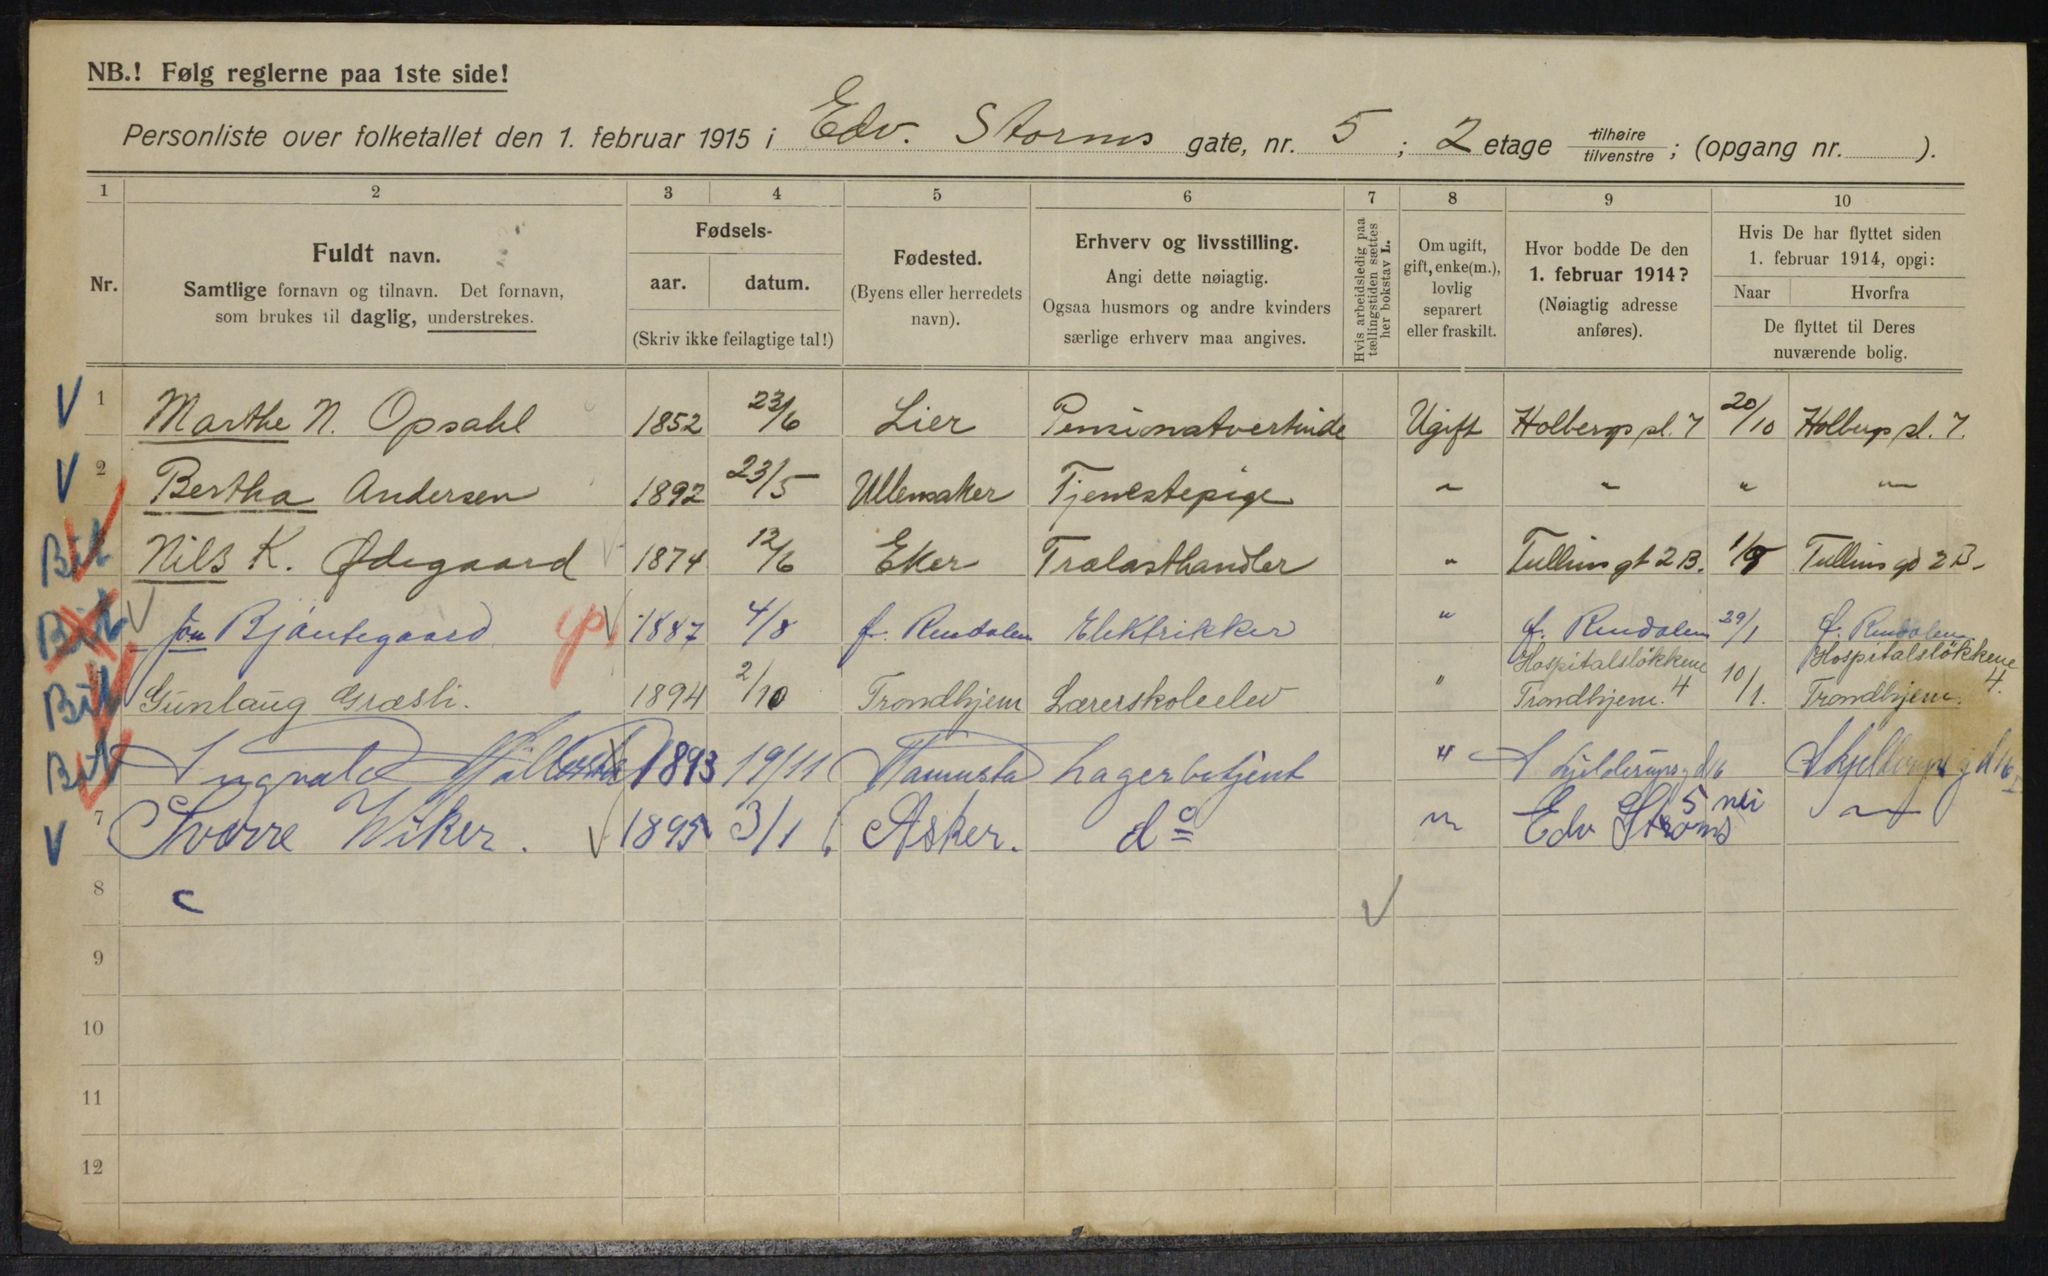 NB.! Følg reglerne paa 1ste side!
Personliste over folketallet den 1. februar 1915 i Edv. Storms gate, nr. 5 ; 2 etage tilhøire/tilvenstre ; (opgang nr. ).
1 2 3 4 5 6 7 8 9 10
Nr.
Fuldt navn.
Samtlige fornavn og tilnavn. Det fornavn,
som brukes til daglig, understrekes.
Fødsels-
aar. datum.
(Skriv ikke feilagtige tal!)
Fødested.
(Byens eller herredets
navn).
Erhverv og livsstilling.
Angi dette nøiagtig.
Ogsaa husmors og andre kvinders
særlige erhverv maa angives.
Hvis arbeidsledig paa
tællingstiden sættes
her bokstav L.
Om ugift,
gift, enke(m.),
lovlig
separert
eller fraskilt.
Hvor bodde De den
1. februar 1914?
(Nøiagtig adresse
anføres).
Hvis De har flyttet siden
1. februar 1914, opgi:
Naar Hvorfra
De flyttet til Deres
nuværende bolig.
V 1 Marthe N. Opsahl 1852 23/6 Lier Pensionatvertinde Ugift Holbergs pl. 7 20/10 Holbergs pl. 7.
V 2 Bertha Andersen 1892 23/5 Ullensaker Tjenestepige " " " "
Bit Nils K. Ødegaard 1874 12/6 Eker Trælasthandler " Tullins gt 2 B. 1/9 Tullins gd 2 B.
Bit Jon Bjøntegaard 1887 4/8 f. Rindalen Elektrikker " f. Rindalen 29/1 f. Rindalen
Bit Gunlaug Græsli. 1894 2/10 Trondhjem Lærerskoleelev " Hospitalsløkkene 4 Trondhjem. 10/1. Hospitalsløkkene 4. Trondhjem.
Bit Ingvald 1893 19/11 Lagerbetjent "
V 7 Sverre Wiker. 1895 3/1 Asker. do " Edv Stroms 5 nei
8
9
10
11
12